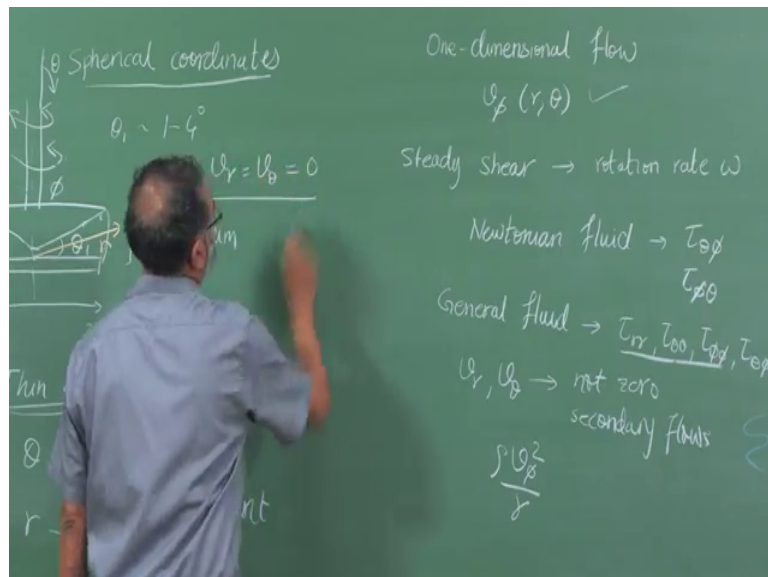 θ Spherical coordinates
θ₁ ~ 1-4°
ϕ
v_r = v_θ = 0
θ₁ r
Thin
θ
r
One-dimensional flow
v_ϕ (r, θ) ✓
Steady shear → rotation rate ω
Newtonian fluid → τ_θϕ
τ_ϕθ
General fluid → τ_rr, τ_θθ, τ_ϕϕ, τ_θϕ
v_r, v_θ → not zero
secondary flows
ρv_ϕ²
r